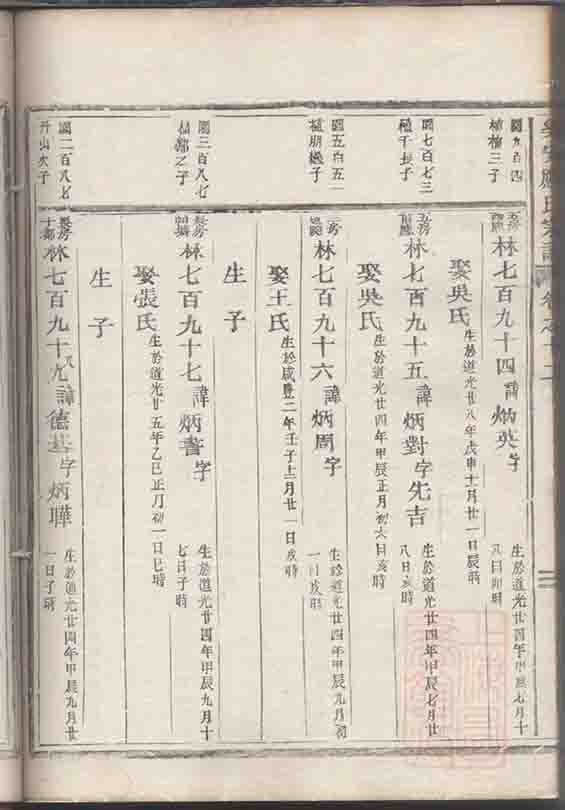 氏宗譜 卷之十二
圖九百四
三子
林七百九十四 諱炳英 字
生於道光廿四年甲辰七月十
八日卯時
娶吳氏 生於道光廿八年戊申十一月廿一日辰時
圖七百七三
植千長子
林七百九十五 諱炳對 字先吉
生於道光廿四年甲辰七月廿
八日亥時
娶吳氏 生於道光廿四年甲辰正月初六日亥時
圖五百五一
植朋幾子
林七百九十六 諱炳周 字
生於道光廿四年甲辰九月初
一日亥時
娶王氏 生於咸豐二年壬子十二月廿一日戌時
生子
圖三百八七
之子
林七百九十七 諱炳書 字
生於道光廿四年甲辰九月十
七日子時
娶張氏 生於道光廿五年乙巳正月初一日巳時
生子
圖二百八七
丹山次子
林七百九十九 諱德基 字炳曄
生於道光廿四年甲辰九月廿
一日子時